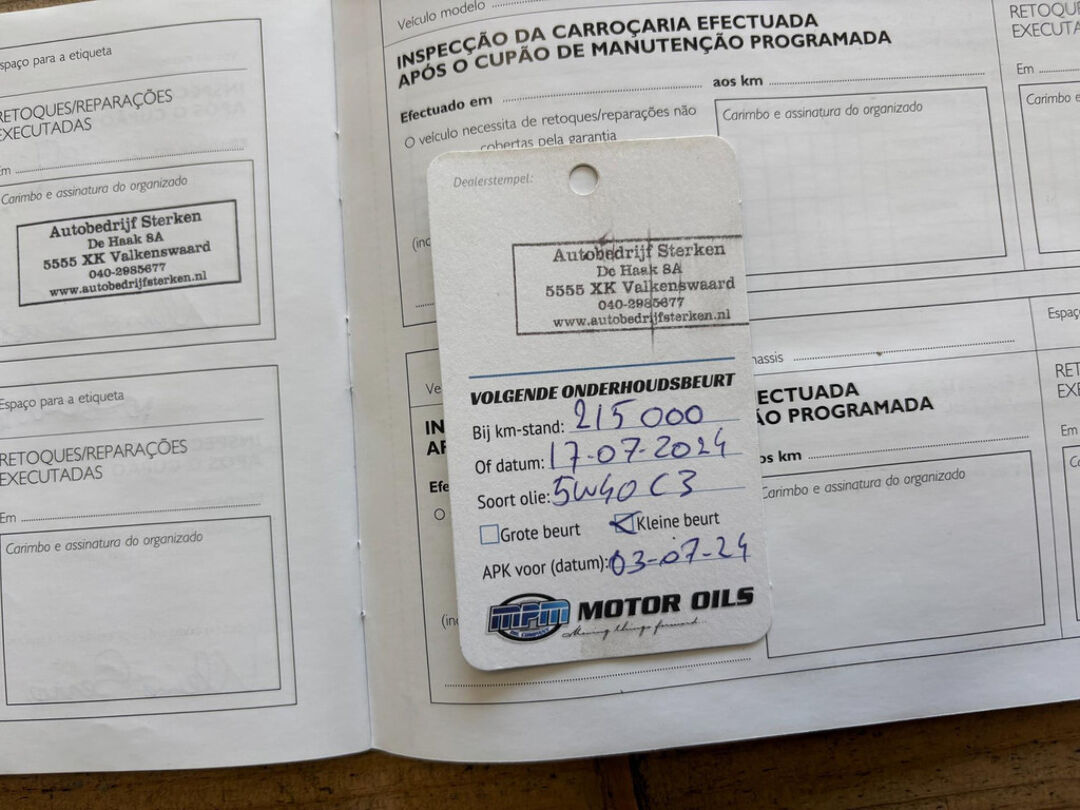 Espaço para a etiqueta
RETOQUES/REPARAÇÕES
EXECUTADAS
Em
Carimbo e assinatura do organizado
Autobedrijf Sterken
De Haak 8A
5555 XK Valkenswaard
040-2985677
www.autobedrijfsterken.nl
Espaço para a etiqueta
RETOQUES/REPARAÇÕES
EXECUTADAS
Em
Carimbo e assinatura do organizado
Veículo modelo
INSPECÇÃO DA CARROÇARIA EFECTUADA
APÓS O CUPÃO DE MANUTENÇÃO PROGRAMADA
Efectuado em
aos km
O veículo necessita de retoques/reparações não
cobertas pela garantia
Carimbo e assinatura do organizado
(inc
Dealerstempel:
Autobedrijf Sterken
De Haak 8A
5555 XK Valkenswaard
040-2985677
www.autobedrijfsterken.nl
VOLGENDE ONDERHOUDSBEURT
Bij km-stand: 215 000
Of datum: 17-07-2024
Soort olie: 5W40 C3
Grote beurt Kleine beurt
APK voor (datum): 03-07-24
MPM OIL COMPANY MOTOR OILS
Moving things forward...
Ve
hassis
IN
ECTUADA
AF
ÃO PROGRAMADA
Efe
os km
O
Carimbo e assinatura do organizado
(in
RETOQU
EXECUTA
Em
Carimbo e
Espaç
RET
EXE
Em
Ca